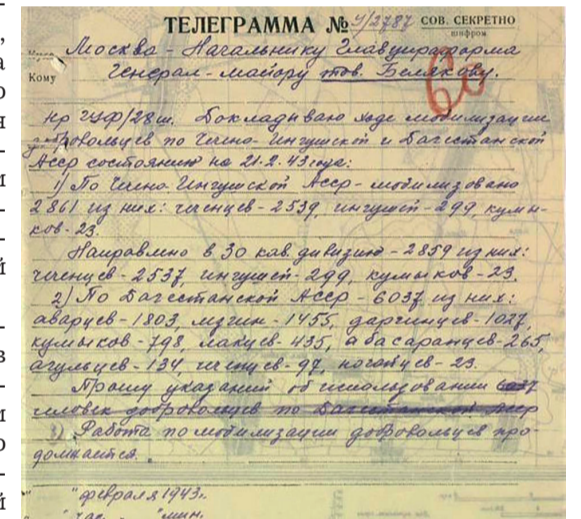 ТЕЛЕГРАММА № У/2787 СОВ. СЕКРЕТНО
шифром
Москва - Начальнику Главупраформа
Кому Генерал-майору тов. Белякову.
60
нр ГУФ/28ш. Докладываю ходе мобилизации
добровольцев по Чечено-Ингушской и Дагестанской
Асср состоянию на 21.2.43 года:
1) По Чечено-Ингушской Асср - мобилизовано
2861 из них: чеченцев - 2539, ингушей - 299, кумы-
ков - 23.
Направлено в 30 кав. дивизию - 2859 из них:
чеченцев - 2537, ингушей - 299, кумыков - 23.
2) По Дагестанской Асср - 6037 из них:
аварцев - 1803, лезгин - 1455, даргинцев - 1027,
кумыков - 798, лакцев - 435, табасаранцев - 265,
агульцев - 134, чеченцев - 97, ногайцев - 23.
Прошу указаний об использовании 6037
человек добровольцев по Дагестанской Асср
3) Работа по мобилизации добровольцев про-
должается.
" " февраля 1943 г.
" час. " мин.